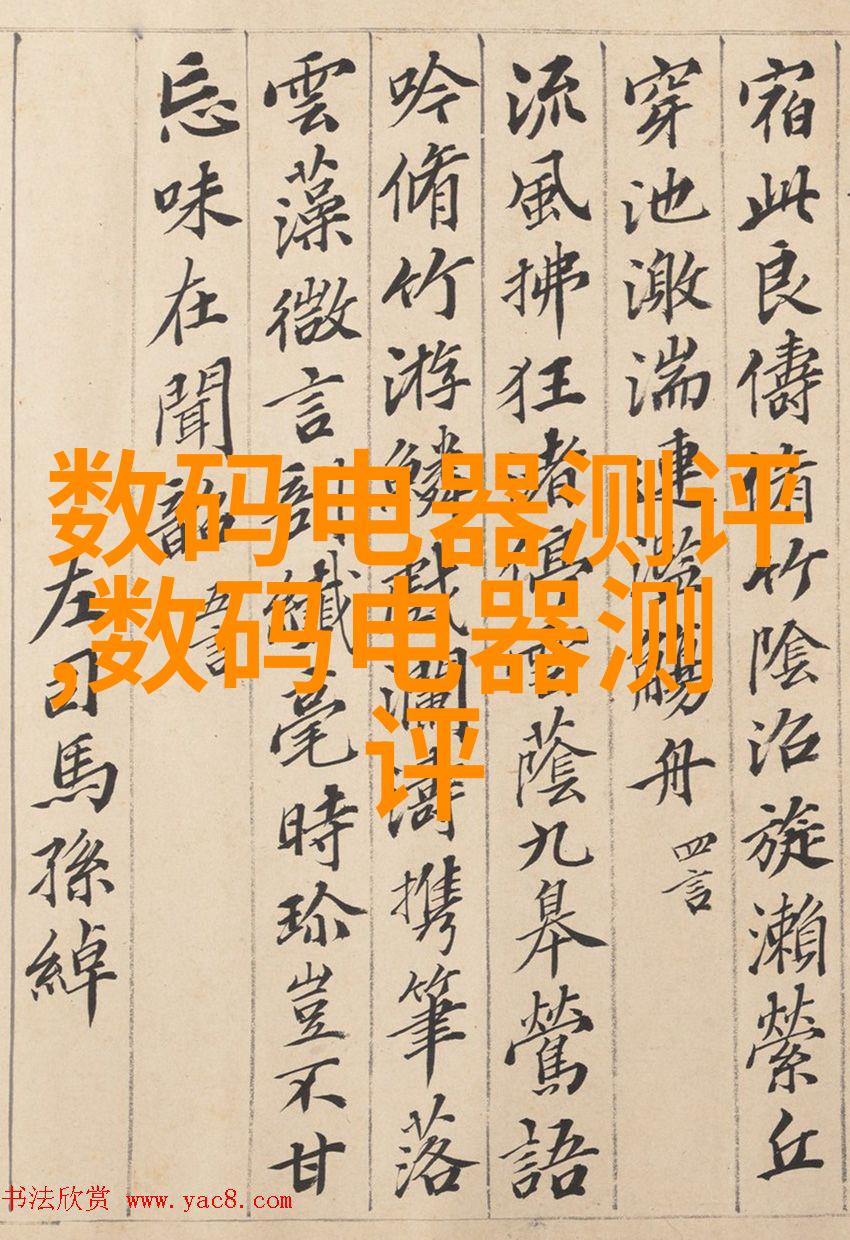 宿此良儔脩竹陰沼旋瀨縈丘
穿池激湍連濫觴舟 四言
流風拂狂渚停雲蔭九皋鶯語
吟脩竹游鱗戲瀾濤攜筆落
雲藻微言剖纖毫時珍豈不甘
忘味在聞韶 五言
左司馬孫綽
数码电器测评
,数码电器测
评
书法欣赏 www.yac8.com